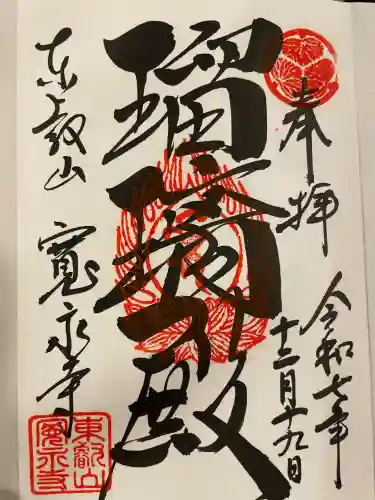 奉拝
令和七年
十二月十九日
瑠璃殿
東叡山
寛永寺
東叡山
寛永寺